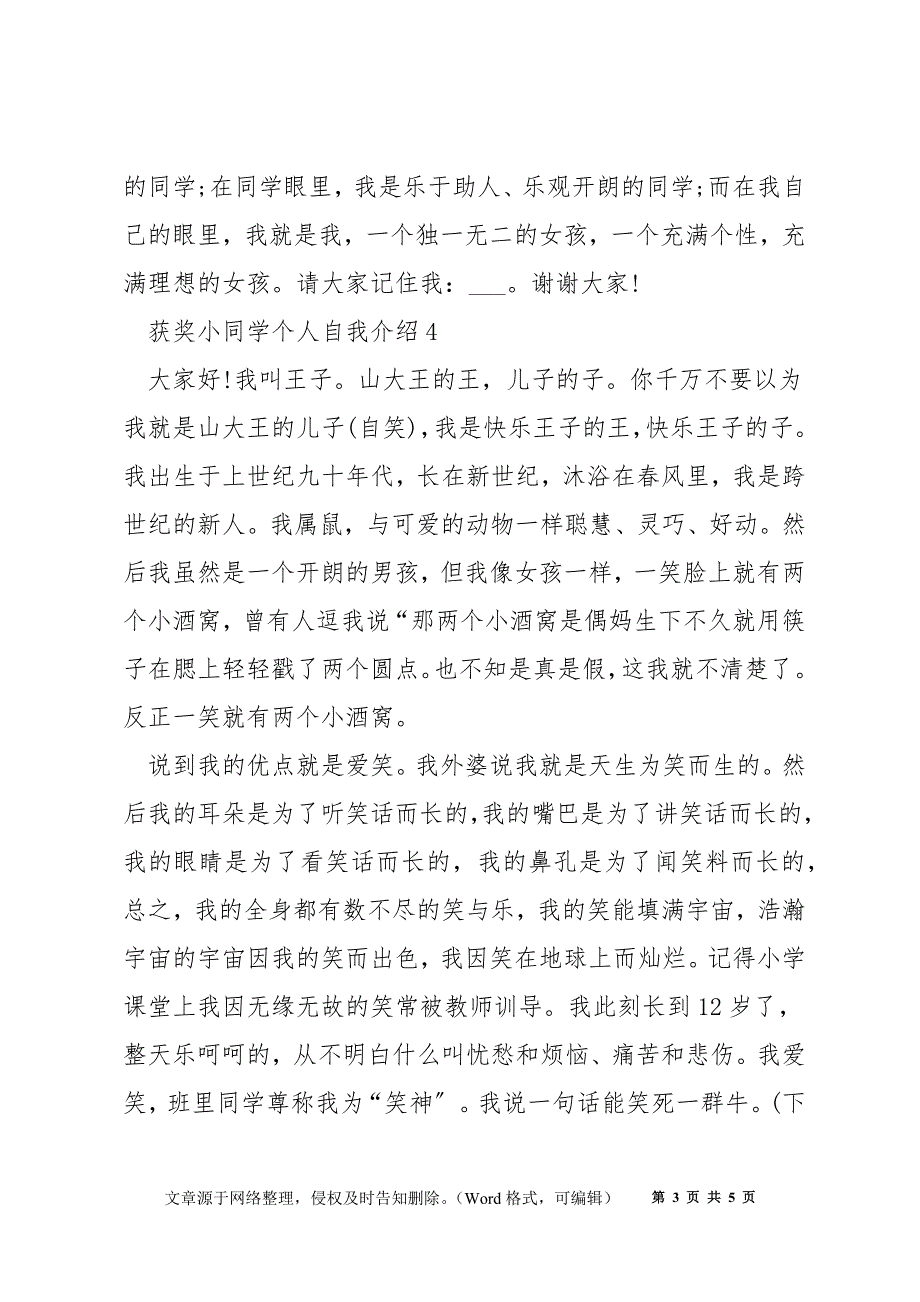 的同学;在同学眼里，我是乐于助人、乐观开朗的同学;而在我自
己的眼里，我就是我，一个独一无二的女孩，一个充满个性，充
满理想的女孩。请大家记住我：___。谢谢大家!
获奖小同学个人自我介绍4
大家好!我叫王子。山大王的王，儿子的子。你千万不要以为
我就是山大王的儿子(自笑),我是快乐王子的王,快乐王子的子。
我出生于上世纪九十年代，长在新世纪，沐浴在春风里，我是跨
世纪的新人。我属鼠，与可爱的动物一样聪慧、灵巧、好动。然
后我虽然是一个开朗的男孩，但我像女孩一样，一笑脸上就有两
个小酒窝，曾有人逗我说“那两个小酒窝是偶妈生下不久就用筷
子在腮上轻轻戳了两个圆点。也不知是真是假,这我就不清楚了。
反正一笑就有两个小酒窝。
说到我的优点就是爱笑。我外婆说我就是天生为笑而生的。然
后我的耳朵是为了听笑话而长的,我的嘴巴是为了讲笑话而长的,
我的眼睛是为了看笑话而长的，我的鼻孔是为了闻笑料而长的,
总之，我的全身都有数不尽的笑与乐，我的笑能填满宇宙，浩瀚
宇宙的宇宙因我的笑而出色，我因笑在地球上而灿烂。记得小学
课堂上我因无缘无故的笑常被教师训导。我此刻长到12岁了，
整天乐呵呵的，从不明白什么叫忧愁和烦恼、痛苦和悲伤。我爱
笑，班里同学尊称我为“笑神〞。我说一句话能笑死一群牛。(下
文章源于网络整理，侵权及时告知删除。（Word格式，可编辑） 第 3 页 共 5 页